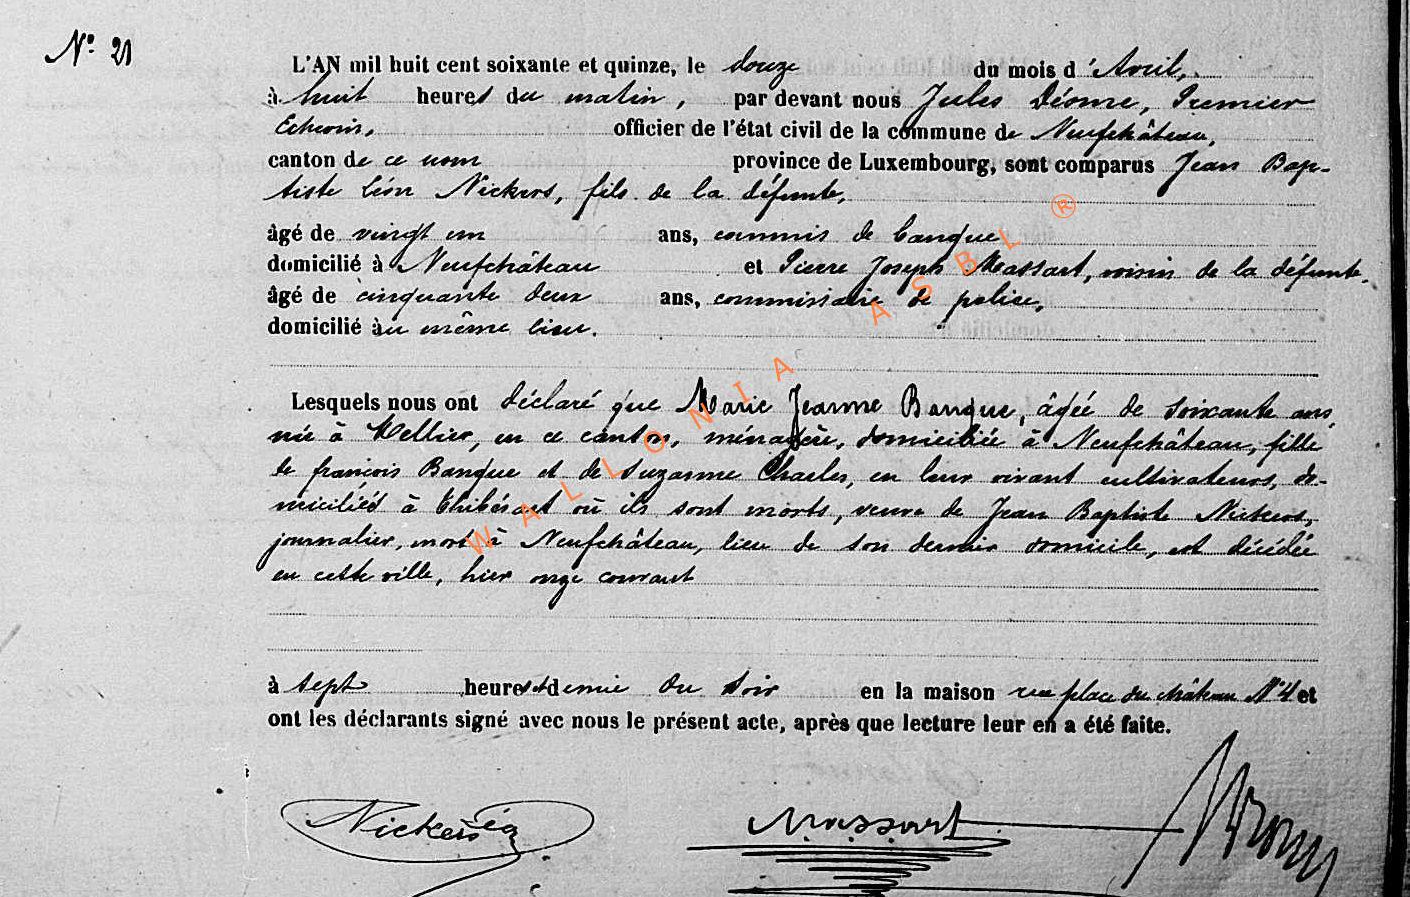 N° 21
L'AN mil huit cent soixante et quinze, le douze du mois d'Avril,
à huit heures du matin, par devant nous Jules Déome, Premier
Echevin, officier de l'état civil de la commune de Neufchâteau,
canton de ce nom province de Luxembourg, sont comparus Jean Bap-
tiste Léon Nickers, fils de la défunte,
âgé de vingt un ans, commis de banque
domicilié à Neufchâteau et Pierre Joseph Massart, voisin de la défunte,
âgé de cinquante deux ans, commissaire de police,
domicilié au même lieu.
Lesquels nous ont déclaré que Marie Jeanne Banque, âgée de soixante ans,
née à Mellier, en ce canton, ménagère, domiciliée à Neufchâteau, fille
de françois Banque et de Suzanne Charles, en leur vivant cultivateurs, do-
miciliés à Thibésart où ils sont morts, veuve de Jean Baptiste Nickers,
journalier, mort à Neufchâteau, lieu de son dernier domicile, est décédée
en cette ville, hier onze courant
à sept heures et demie du soir en la maison rue place du château N° 4 et
ont les déclarants signé avec nous le présent acte, après que lecture leur en a été faite.
Nickers Massart
WALLONIA ASBL ®